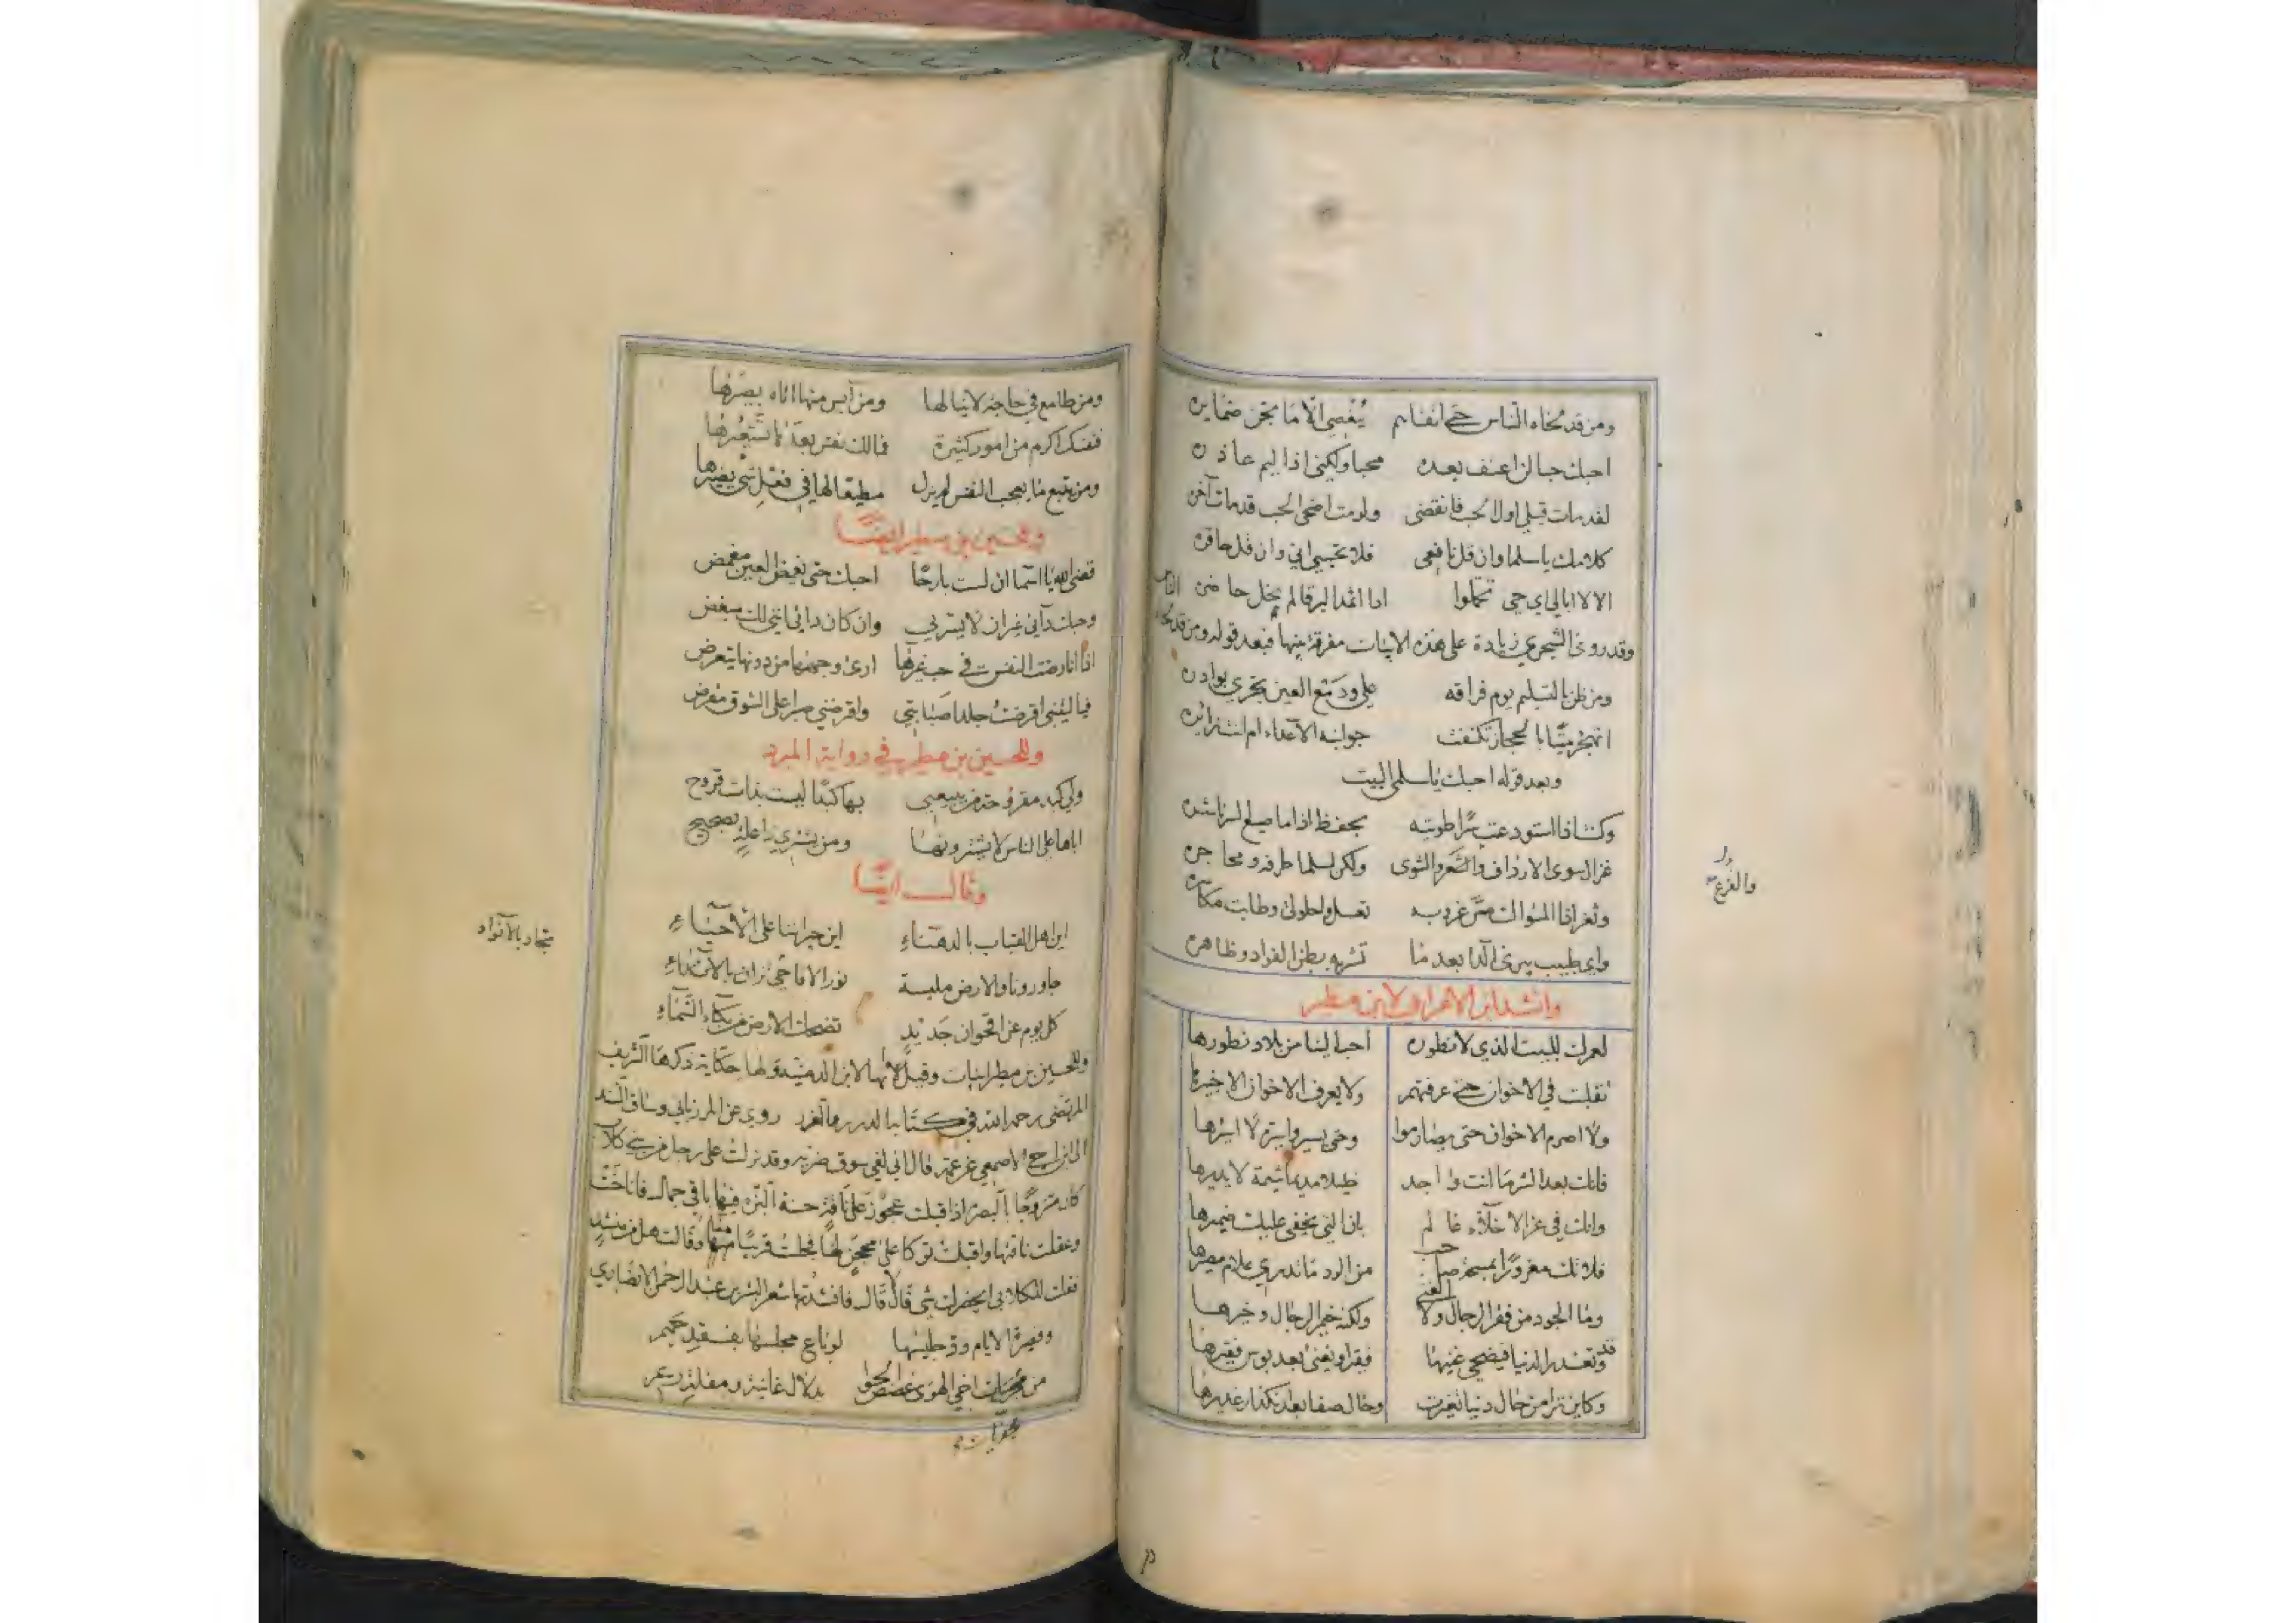 ومن قد لحاه الناس حتى اتقاهم بُغضي الا ما تجن ضمايره
احبك حبا لن اعنف بعده محبا ولكني اذا ليم عاذره
لقد مات قبلي اول الحب فانقضى ولو مت اضحى الحب قد مات آخره
كلامك يا سلما وان قل نافعي فلا تحسبي اني وان قل حاقره
الا لا ابالي اي حي تحملوا اذا اثمد البرقا لم يخل حاضره
وقد روى الشجري زيادة على هذه الابيات مفرقة بينها فبعد قوله ومن قد لحاه الناس
ومن ظن بالتسليم يوم فراقه علي ودمع العين تجري بوادره
اتهجر بيتا بالحجاز تكنفت جوانبه الاعداء ام انت زائره
وبعد قوله احبك يا سلمى البيت
وكنت اذا استودعت سرا طويته بحفظ اذا ما ضيع السر ناشره
غزال سوى الارداف والشعر والشوى ولكن لسلما طرفه ومحاجره
والفرع
وثغر اذا المسواك مس غروبه تعسل واحلولى وطابت مكاسره
واي طبيب يبرئ الدا بعد ما تشربه بطن الفواد وظاهره
وانشد ابن الاعرابي لابن مطير
لعمرك للبيت الذي لا نطوره احب الينا من بلاد نطورها
تقلبت في الاخوان حتى عرفتهم ولا يعرف الاخوان الا خبيرها
ولا اصرم الاخوان حتى يصارموا وحتى يسيروا سيرة لا اسيرها
فانك بعد الشر ما انت واجد خليلا مديما شيمة لا يديرها
وانك في عز الاخلاء عالم بان التي يخفى عليك ضميرها
فلا تك مغرورا بمسحة صاحب من الود ما تدري علام مصيرها
وما الجود من فقر الرجال ولا الغنى ولكنه خيم الرجال وخيرها
وقد تغدر الدنيا فيضحي غنيها فقيرا ويغنى بعد بوس فقيرها
وكاين ترا من حال دنيا تغيرت وحال صفا بعد اكدار غديرها
ومن طامع في حاجة لا ينالها ومن آيس منها اتاه بصيرها
فنفسك اكرم من امور كثيرة فمالك نفس بعدها تستعيرها
ومن يتبع ما يعجب النفس لم يزل مطيعا لها في فعل شي يضيرها
وللحسين بن مطير ايضا
قضى الله يا اسما ان لست بارحا احبك حتى يغمض العين مغمض
وحبك داني غير ان لا يسرني وان كان دائي انني لك مبغض
اذا انا رضت النفس في حب غيرها ارى وجهها من دونها يتعرض
فيا ليتني اقرضت جلدا صبابتي واقرضني صبرا على الشوق مقرض
وللحسين بن مطير في رواية المبرد
ولي كبد مقروحة من يبيعني بها كبدا ليست بذات قروح
اباها علي الناس لا يشترونها ومن يشتري ذا علة بصحيح
وقال ايضا
اين اهل القباب بالدهناء اين جيراننا على الاحساء
تجاد بالانواء
جاورونا والارض ملبسة نور الاقاحي تزان بالانداء
كل يوم عن اقحوان جديد تضحك الارض من بكاء السماء
وللحسين بن مطير ابيات وقيل انها لابن الدمينة ولها حكاية ذكرها الشريف
المرتضى رحمه الله في كتاب الدرر والغرر روي عن المرزباني وساق السند
الى ابن اخي الاصمعي عن عمه قال اني لفي سوق ضرية وقد نزلت على رجل من بني كلاب
كان متزوجا بالبصرة اذ اقبلت عجوز على ناقة حسنة البزة فيها باقي جمال فاناخت
وعقلت ناقتها واقبلت تتوكا على محجن لها فجلست قريبا منا وقالت هل من منشد
فقلت للكلابي ايحضرك شي قال لا قال فانشدتها شعر البشر بن عبد الرحمن الانصاري
وقصيرة الايام ود جليسها لو باع مجلسها بفقد حميم
من محزيات اخي الهوى غصص الجوا بدلال غانية ومقلة ريم